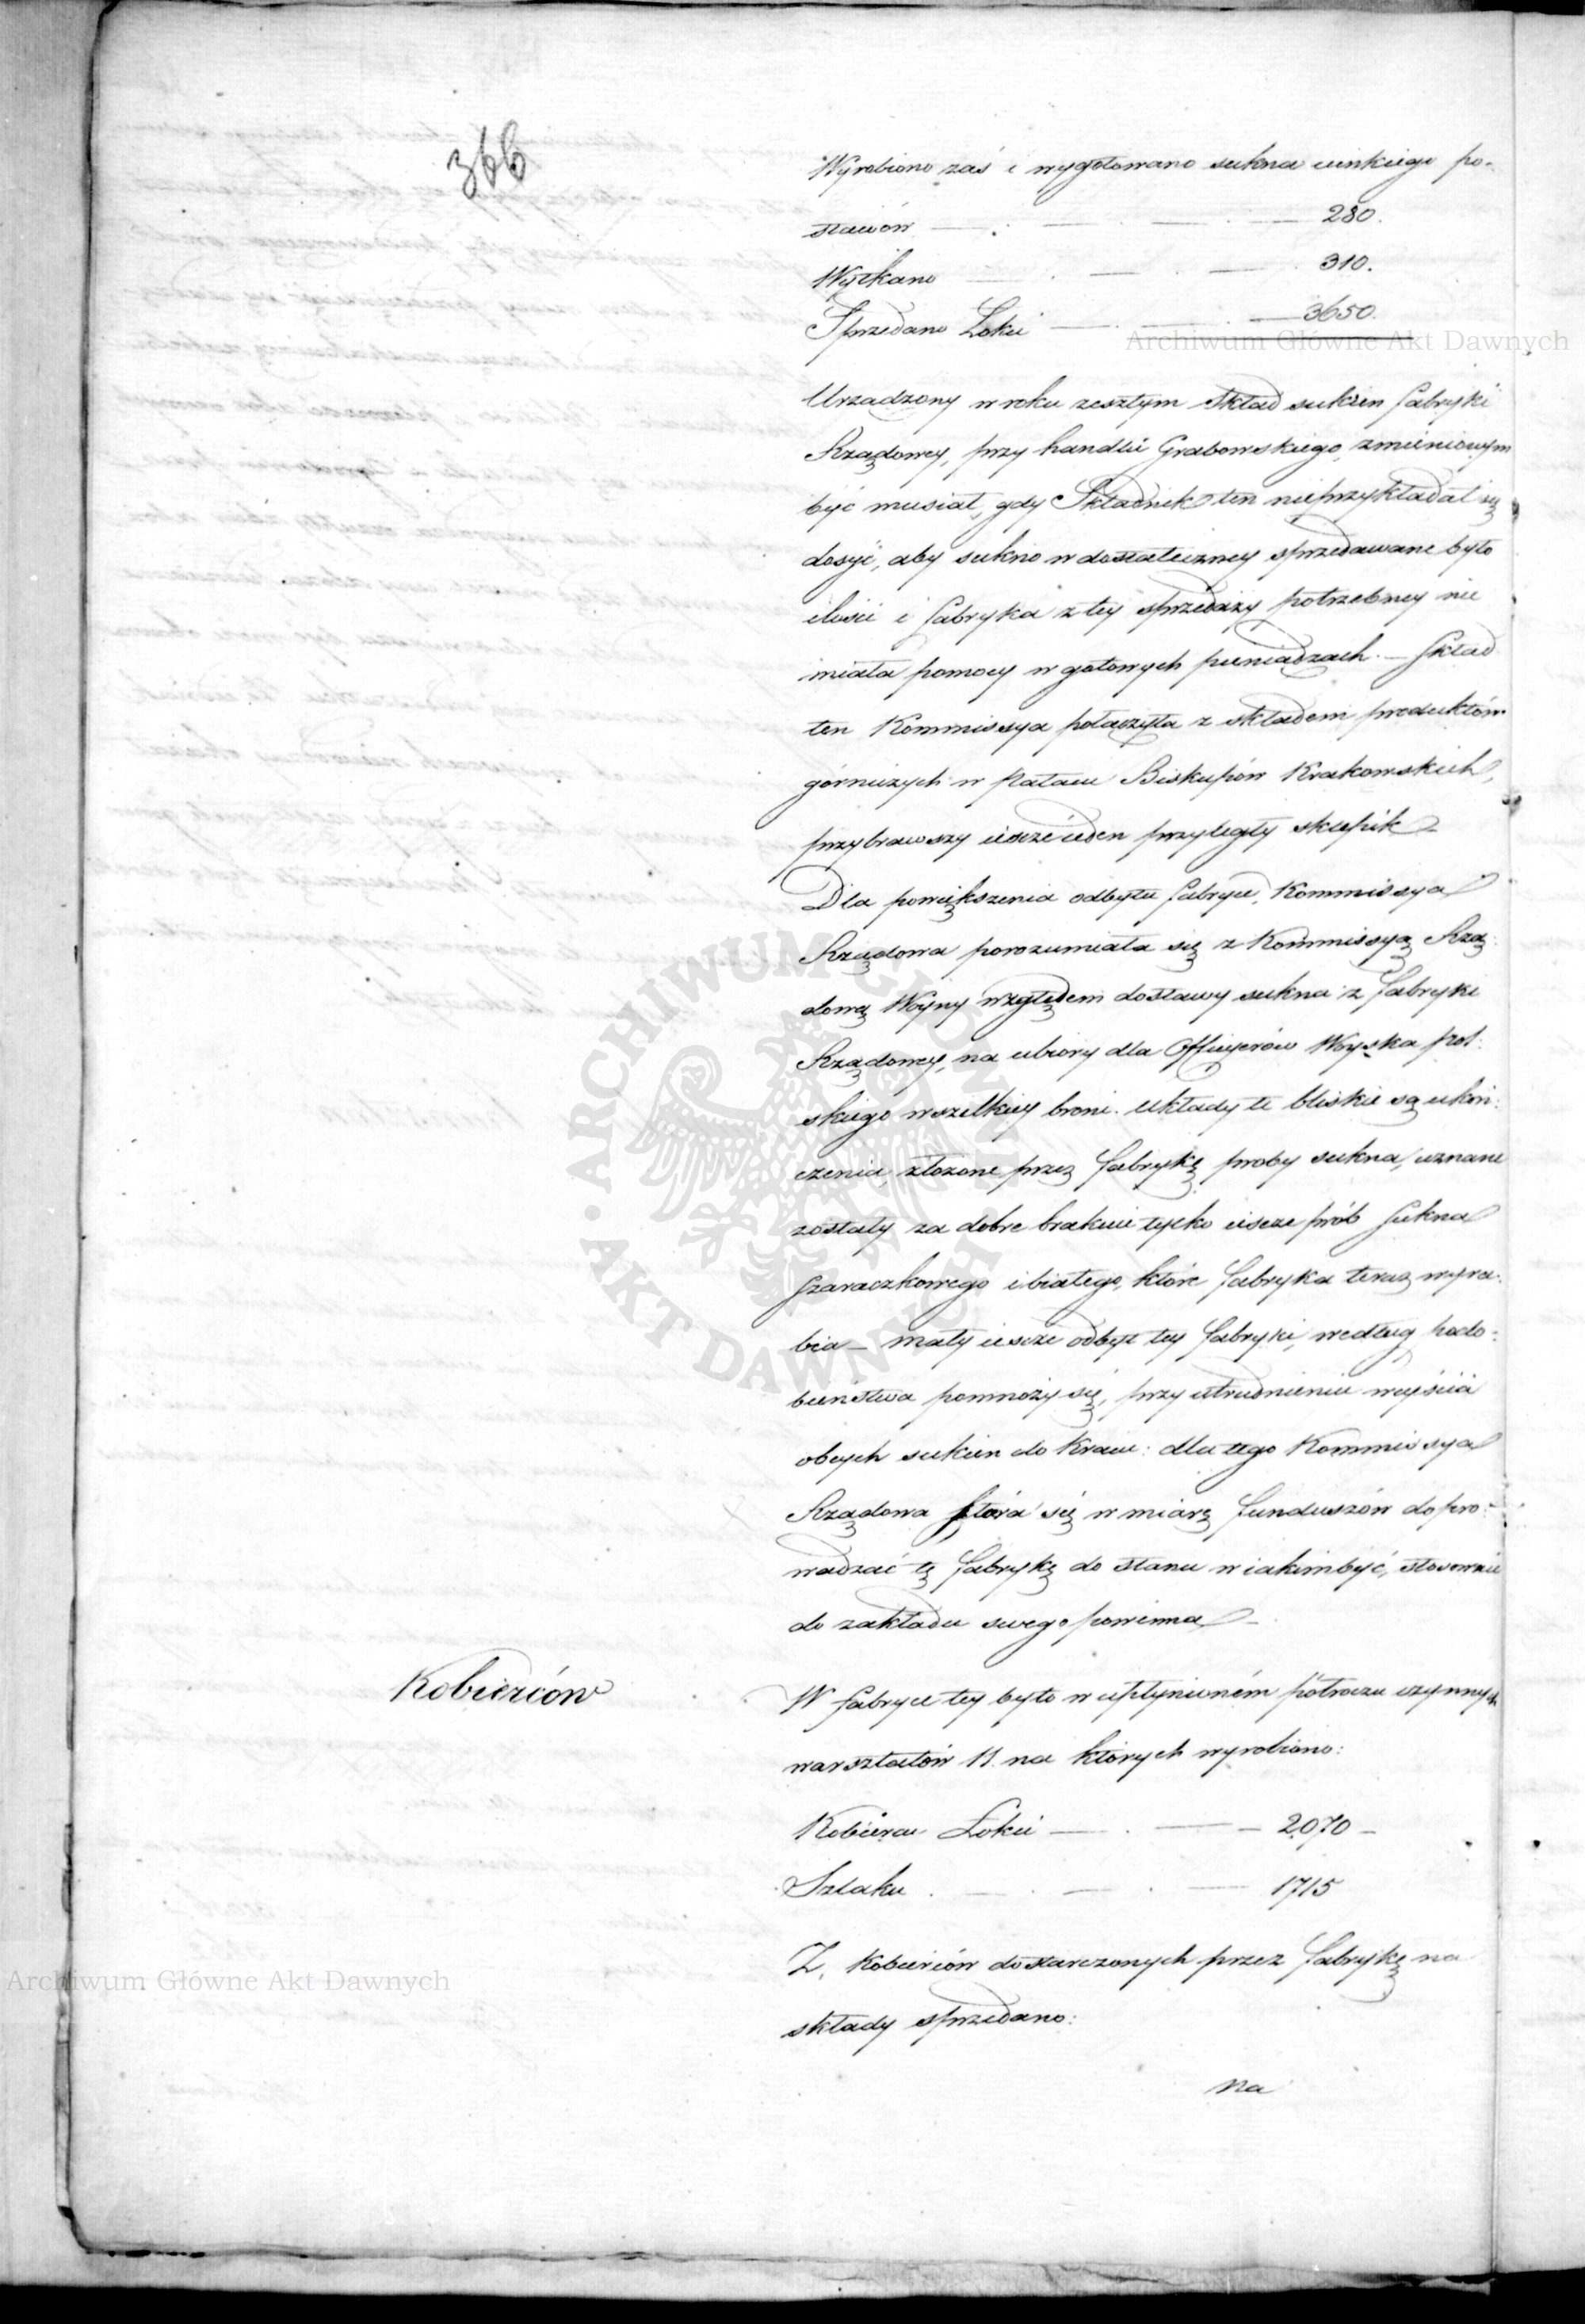 366
Wyrobiono zaś i wygotowano sukna cienkiego po-
stawów — . — . — 280.
Wytkano — . — . — 310.
Sprzedano Łokci — . — . — 3650.
Archiwum Główne Akt Dawnych
Urządzony w roku zeszłym skład sukien fabryki
Rządowey, przy handlu Grabowskiego, zmienionym
być musiał, gdy Składnik ten nieprzykładał się
dosyć, aby sukno w dostateczney sprzedawane było
ilości i fabryka z tey sprzedaży potrzebney nie
miała pomocy w gotowych pieniądzach. — Skład
ten Kommissya połączyła z składem produktów
górniczych w Pałacu Biskupów Krakowskich,
przybrawszy ieszcze ieden przyległy sklepik —
Dla powiększenia odbytu fabryce, Kommissya
Rządowa porozumiała się z Kommissyą Rzą:
dową Woyny względem dostawy sukna z fabryki
Rządowey, na ubiory dla Officyerów Woyska pol:
skiego wszelkiey broni. Układy te bliskie są ukoń:
czenia, złożone przez fabrykę proby sukna, uznane
zostały za dobre brakuie tylko ieszcze prób sukna
szaraczkowego i białego, które fabryka teraz wyra:
bia — mały ieszcze odbyt tey fabryki, według podo:
bieństwa pomnoży się, przy utrudnieniu weyścia
obcych sukien do Kraiu: dla tego Kommissya
Rządowa stara się w miarę funduszów dopro:
wadzać tę fabrykę do stanu w iakim być, stosownie
do zakładu swego powinna —
Kobierców
W fabryce tey było w upłynioném półroczu czynnych
warsztatów 11. na których wyrobiono:
Kobierca Łokci — . — — 2070 —
Szlaku . — . — . — 1715
Z, Kobierców dostarczonych przez fabrykę na
składy sprzedano:
na
Archiwum Główne Akt Dawnych
ARCHIWUM GŁÓWNE • AKT DAWNYCH •